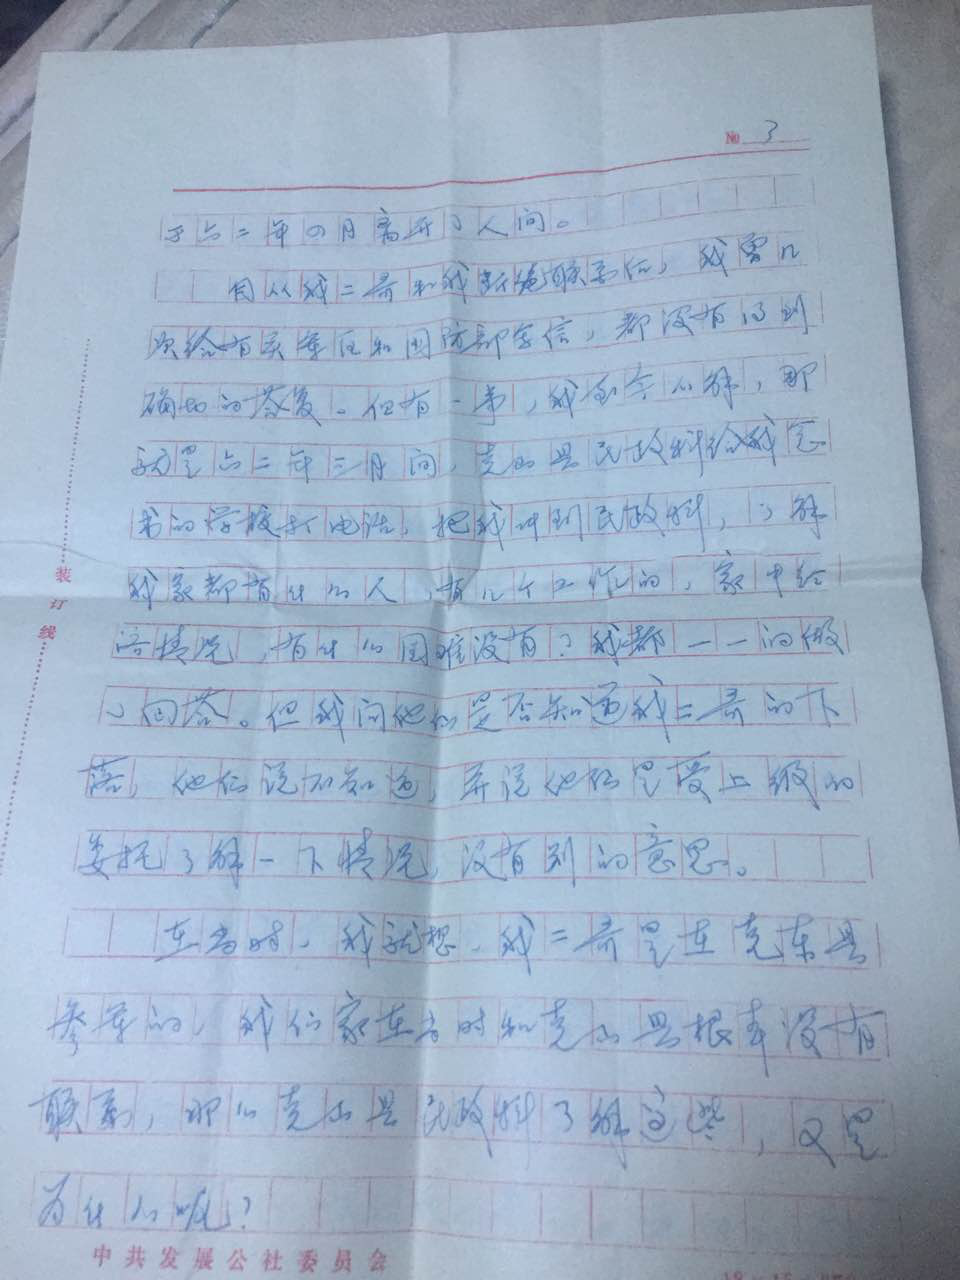 № 3
于六二年四月离开了人间。
自从我二哥和我断绝联系后，我曾几
次给有关军区和国防部写信，都没有得到
确切的答复。但有一事，我至今不解，那
就是六二年三月间，克山县民政科给我念
书的学校打电话，把我叫到民政科，了解
我家都有什么人，有几个工作的，家中经
济情况，有什么困难没有？我都一一的做
了回答。但我问他们是否知道我二哥的下
落，他们说不知道，并说他们是受上级的
委托了解一下情况，没有别的意思。
在当时，我就想，我二哥是在克东县
参军的，我们家在当时和克山县根本没有
联系，那么克山县民政科了解这些，又是
为什么呢？
装订线
中共发展公社委员会